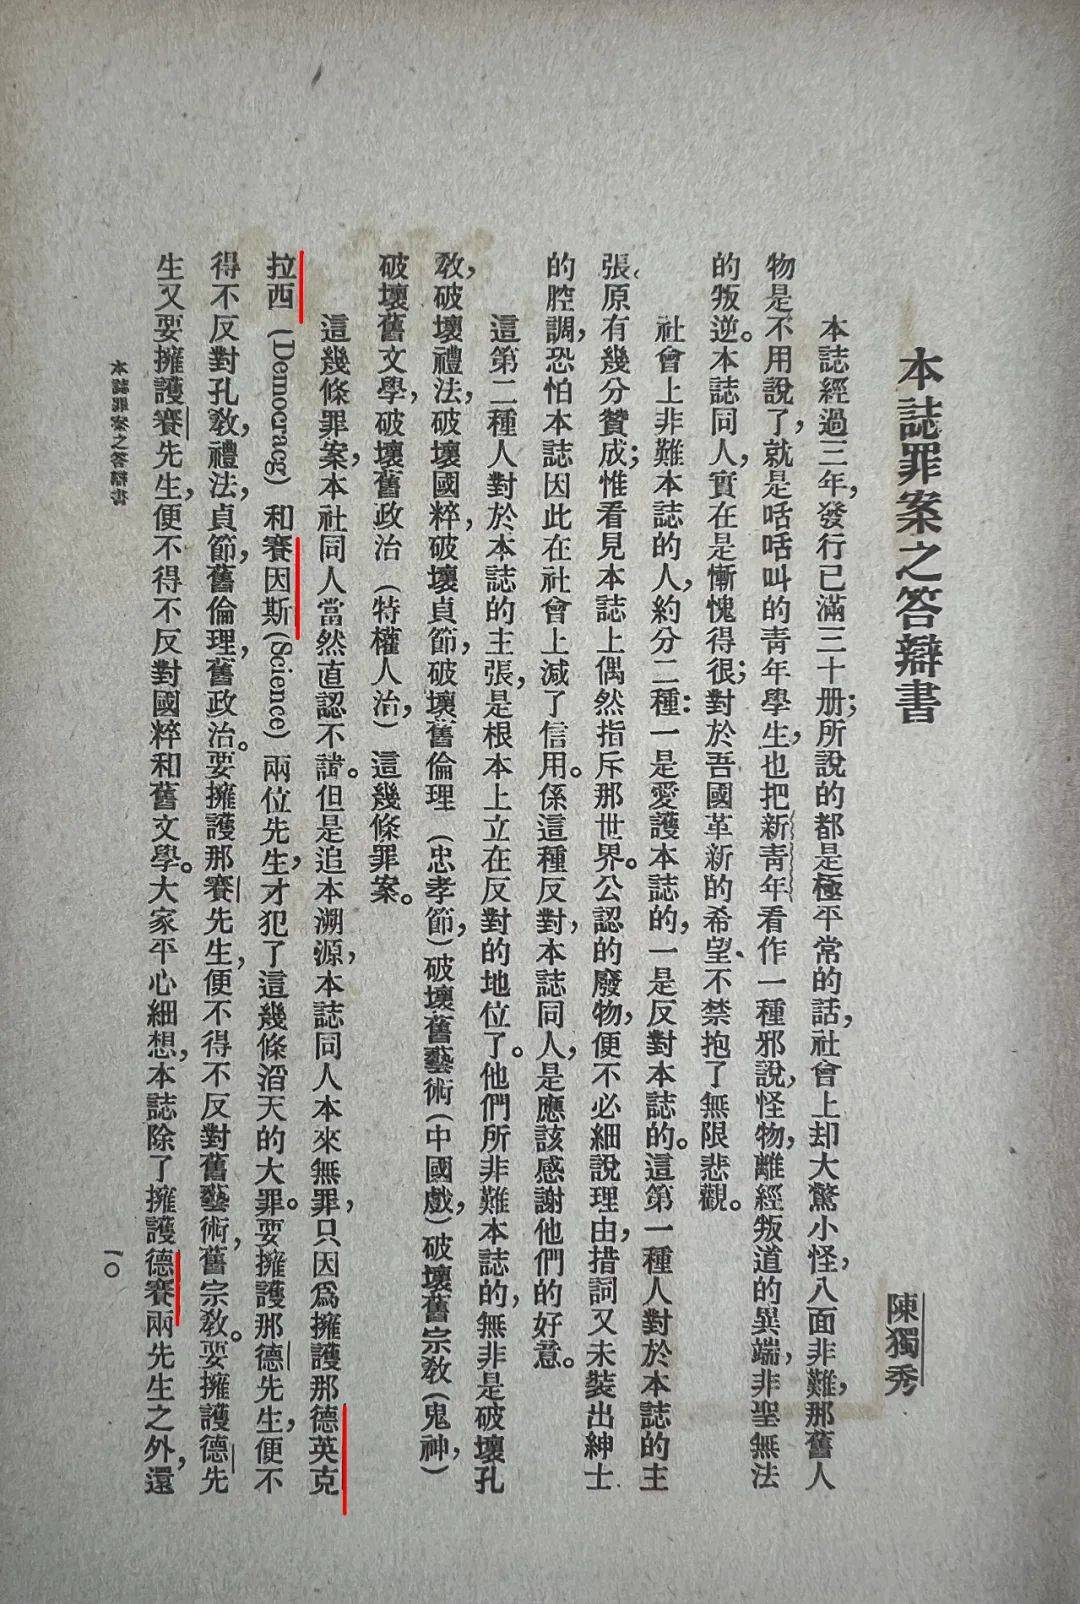 本誌罪案之答辯書
陳獨秀
本誌經過三年，發行已滿三十册；所說的都是極平常的話，社會上却大驚小怪，八面非難，那舊人
物是不用說了，就是咶咶叫的靑年學生，也把新靑年看作一種邪說，怪物，離經叛道的異端，非聖無法
的叛逆。本誌同人，實在是慚愧得很；對於吾國革新的希望、不禁抱了無限悲觀。
社會上非難本誌的人，約分二種：一是愛護本誌的，一是反對本誌的。這第一種人對於本誌的主
張，原有幾分贊成；惟看見本誌上偶然指斥那世界。公認的廢物，便不必細說理由，措詞又未裝出紳士
的腔調，恐怕本誌因此在社會上減了信用。係這種反對，本誌同人，是應該感謝他們的好意。
這第二種人對於本誌的主張，是根本上立在反對的地位了。他們所非難本誌的，無非是破壞孔
敎，破壞禮法，破壞國粹，破壞貞節，破壞舊倫理（忠孝節），破壞舊藝術（中國戲），破壞舊宗敎（鬼神），
破壞舊文學，破壞舊政治（特權人治），這幾條罪案。
這幾條罪案，本社同人當然直認不諱。但是追本溯源，本誌同人本來無罪，只因爲擁護那德英克
拉西（Democracg）和賽因斯（Science）兩位先生，才犯了這幾條滔天的大罪。要擁護那德先生，便不
得不反對孔敎，禮法，貞節，舊倫理，舊政治。要擁護那賽先生，便不得不反對舊藝術，舊宗敎。要擁護德先
生又要擁護賽先生，便不得不反對國粹和舊文學。大家平心細想，本誌除了擁護德賽兩先生之外，還
本誌罪案之答辯書
一〇